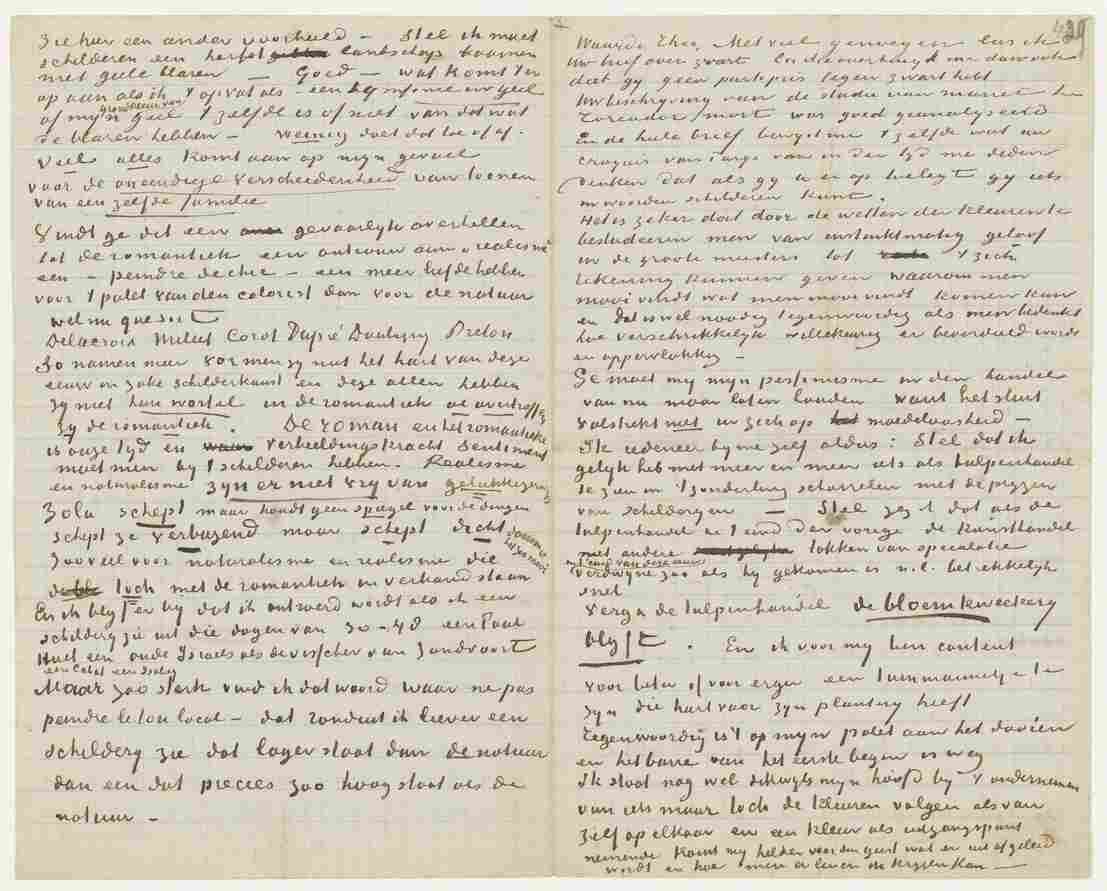 Ziehier een ander voorbeeld – Stel ik moet
schilderen een herfst landschap boomen
met geele blaren – Goed – wat komt er
op aan als ik 't opvat als – een symfonie in geel
grondkleur van
of mijn geel 't zelfde is of niet van dat wat
de blaren hebben – weinig doet dat toe of af.
Veel alles komt aan op mijn gevoel
voor de oneindige verscheidenheid van toonen
van een zelfde familie
Vindt ge dit een gevaarlijk overhellen
tot de romantiek een ontrouw aan 't realisme
een – peindre de chic – een meer liefde hebben
voor 't palet van den colorist dan voor de natuur
welnu que soit
Delacroix Millet Corot Dupré Daubigny Breton
30 namen meer vormen zij niet het hart van deze
eeuw in zake schilderkunst en deze allen hebben
zij niet hun wortel in de romantiek al overtroffen
zij de romantiek. De roman en het romantieke
is onze tijd en verbeeldingskracht sentiment
moet men bij 't schilderen hebben. Realisme
en naturalisme zijn er niet vrij van gelukkigerwijs
Zola schept maar houdt geen spiegel voor de dingen
schept ze verbazend maar schept dicht
daarom is
het zoo mooi
Zooveel voor naturalisme en realisme die
toch met de romantiek in verband staan
En ik blijf er bij dat ik ontroerd wordt als ik een
schilderij zie uit die dagen van 30-48 een Paul
Huet een oude Israels als de visscher van Zandvoort
een Cabat een Isabey
Maar zoo sterk vind ik dat woord waar ne pas
peindre le ton local – dat ronduit ik liever een
schilderij zie dat lager staat dan de natuur
dan een dat precies zoo hoog staat als de
natuur –
Waarde Theo, Met veel genoegen las ik
Uw brief over zwart En die overtuigt me dan ook
dat gij geen partipris tegen zwart hebt
Uw beschrijving van de studie van Manet le
toreador mort was goed geanalyseerd
En de heele brief bewijst me 't zelfde wat uw
croquis van Parijs van in der tijd me deden
denken dat als gij U er op toelegt gij iets
in woorden schilderen kunt.
Het is zeker dat door de wetten der kleuren te
bestudeeren men van instinktmatig geloof
in de groote meesters tot 't zich
rekening kunnen geven waarom men
mooi vindt wat men mooi vindt komen kan
en dat is wel noodig tegenwoordig als men bedenkt
hoe verschrikkelijk willekeurig er beoordeeld wordt
en oppervlakkig –
Ge moet mij mijn pessimisme in den handel
van nu maar laten houden want het sluit
volstrekt niet in zich op moedeloosheid –
Ik redeneer bij me zelf aldus: Stel dat ik
gelijk heb met meer en meer iets als tulpenhandel
te zien in 't zonderling scharrelen met de prijzen
van schilderijen – Stel zeg ik dat als de
tulpenhandel in 't eind der vorige de kunsthandel
in 't eind van deze eeuw
met andere takken van speculatie
verdwijne zoo als hij gekomen is n.l. betrekkelijk
snel
Verga de tulpenhandel de bloemkweekerij
blijft. En ik voor mij ben content
voor beter of voor erger een tuinmannetje te
zijn die hart voor zijn planterij heeft
Tegenwoordig is 't op mijn palet aan het dooien
en het barre van het eerste begin is weg
Ik stoot nog wel dikwijls mijn hoofd bij 't ondernemen
van iets maar toch de kleuren volgen als van
zelf op elkaar en een kleur als uitgangspunt
nemende komt mij helder voor den geest wat er uit afgeleid
wordt en hoe men er leven in krijgen kan –